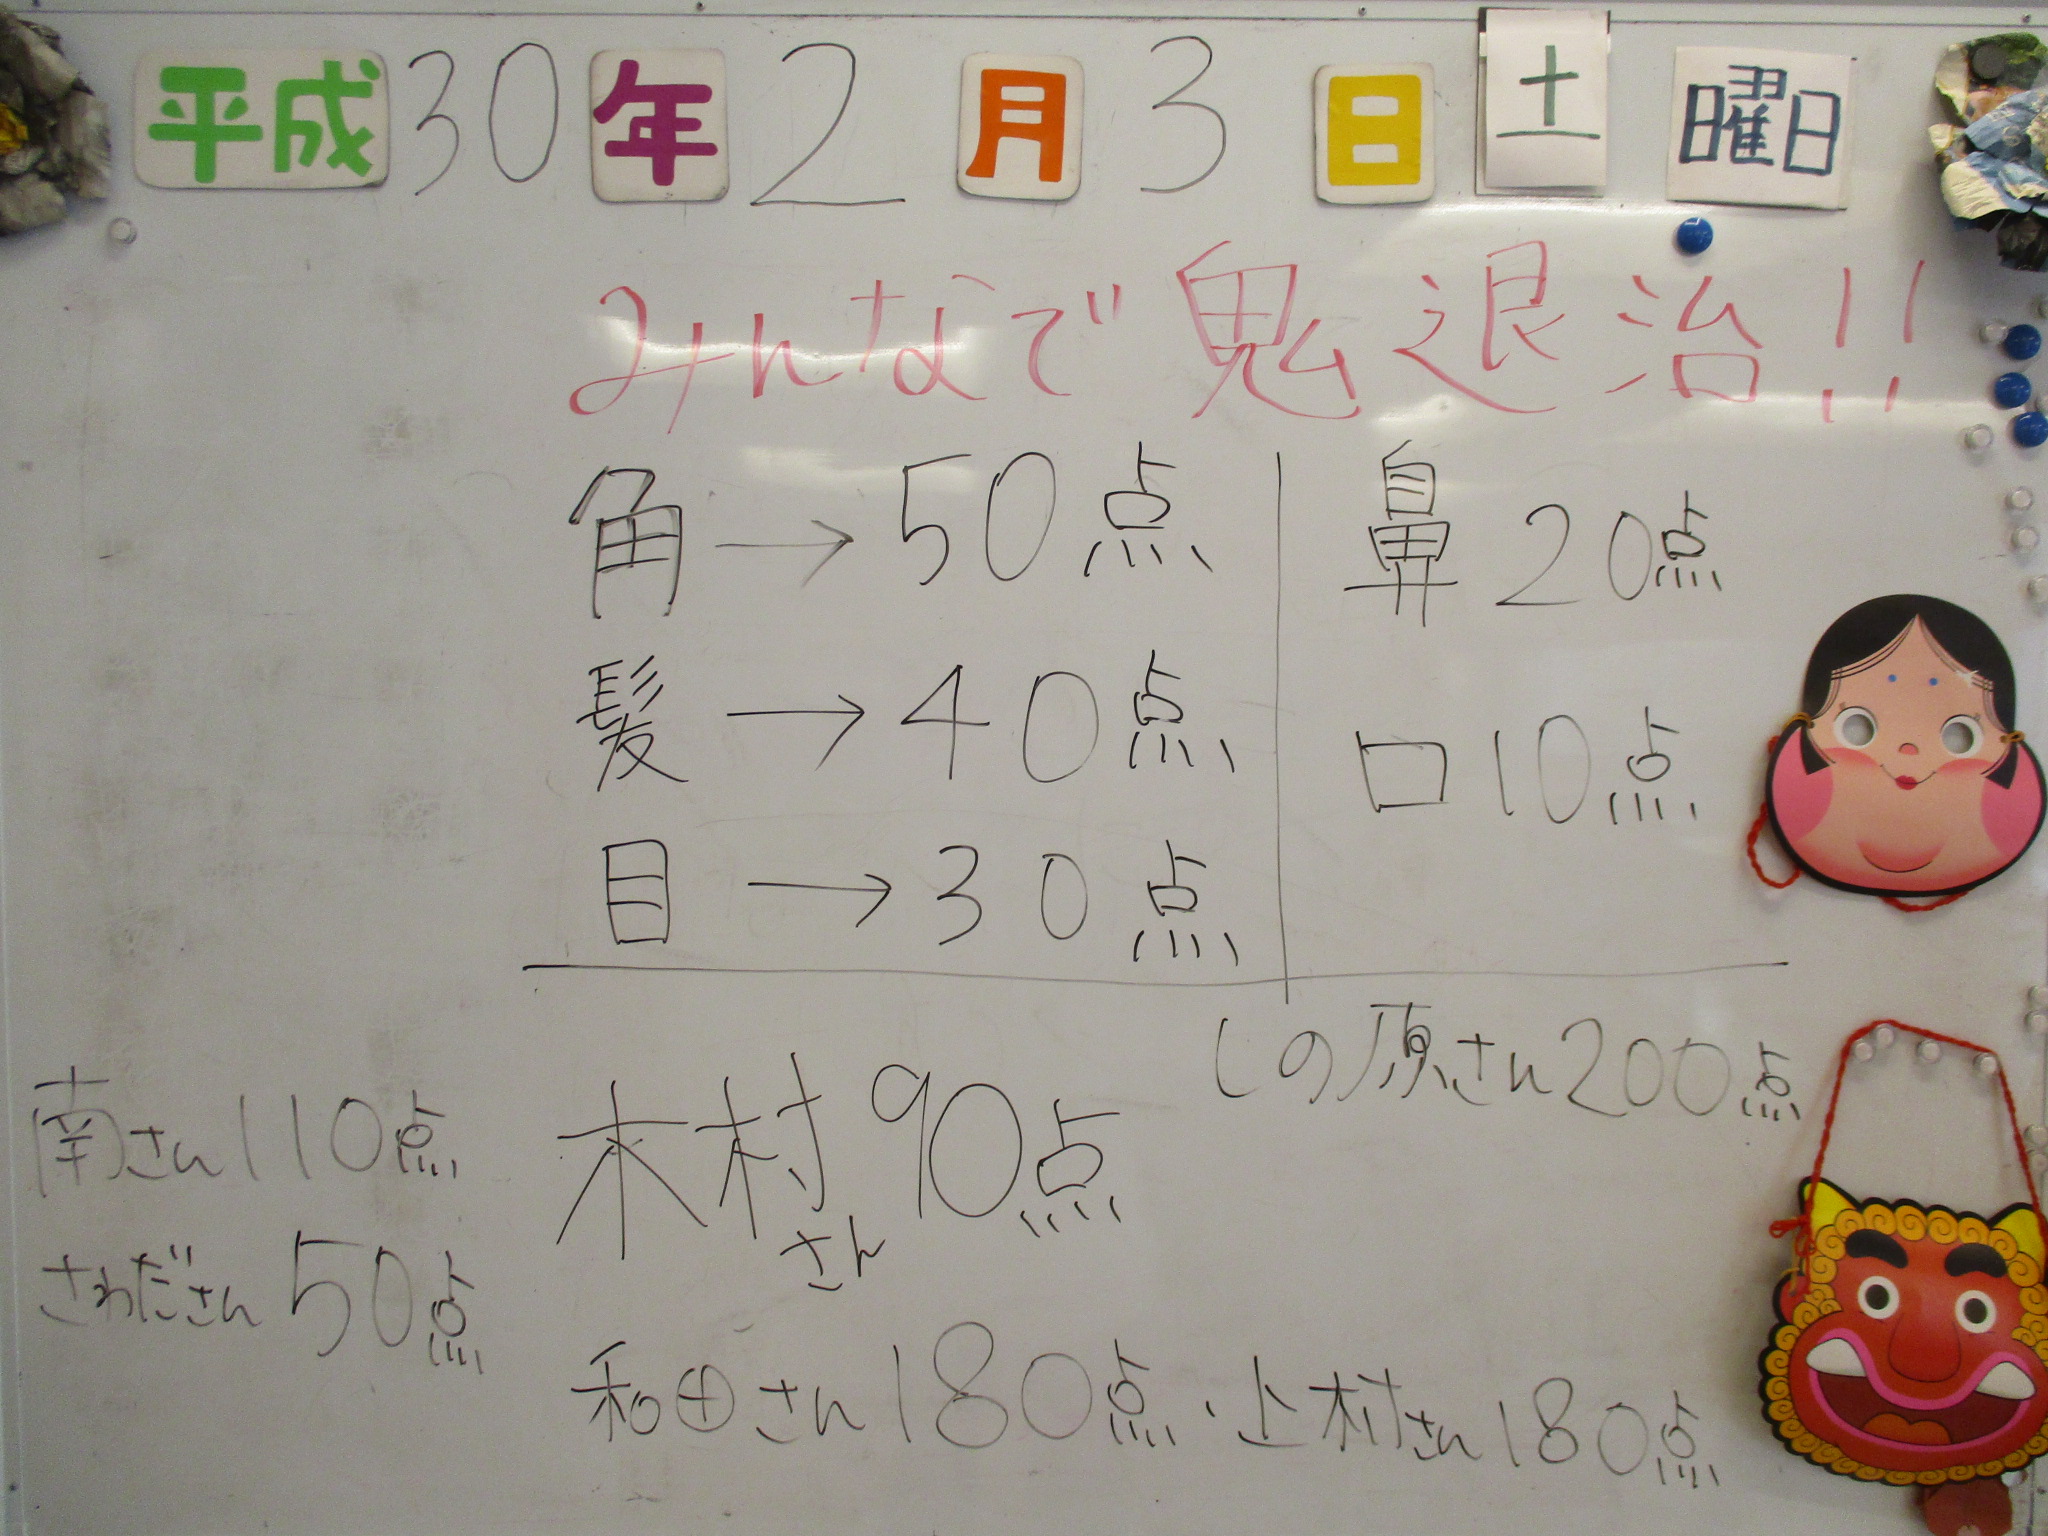 平成30年2月3日土曜日
みんなで鬼退治!!
角→50点
髪→40点
目→30点
鼻20点
口10点
しの原さん200点
南さん110点
木村さん90点
さわださん50点
和田さん180点・上村さん180点